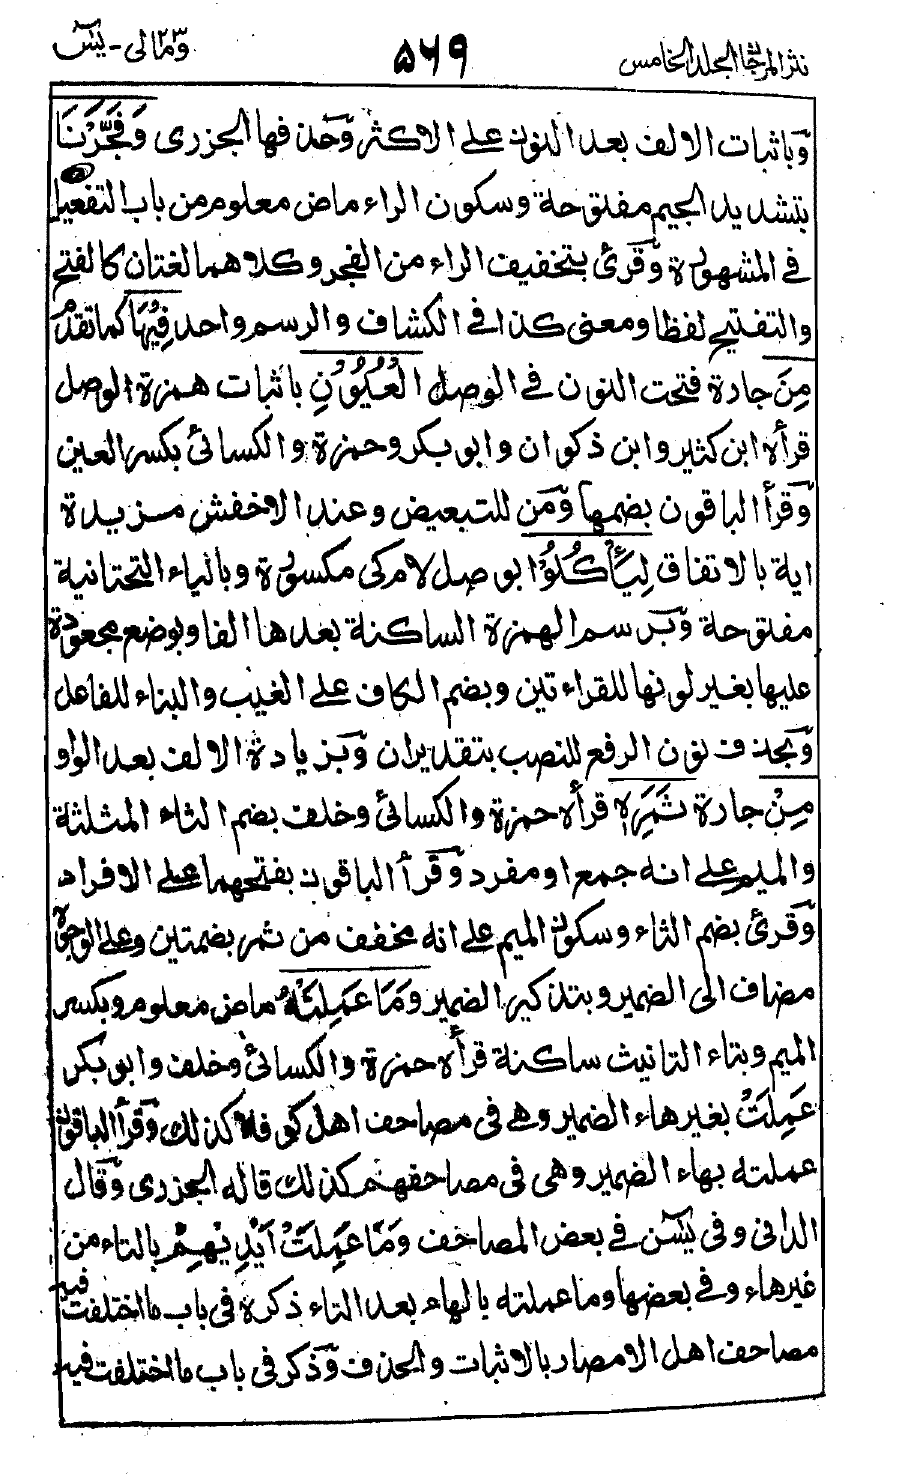 نثر المرجان المجلد الخامس
٥٦٩
ومالى ٢٣ - يٰسٓ
وباثبات الالف بعد النون على الاكثر وحذفها الجزرى وَفَجَّرْنَا
بتشديد الجيم مفتوحة وسكون الراء ماض معلوم من باب التفعيل
فى المشهورة وقرئ بتخفيف الراء من الفجر وكلاهما لغتان كالفتح
والتفتيح لفظا ومعنى كذا فى الكشاف والرسم واحد فِيْهَا كما تقدم
مِنَ جارة فتحت النون فى الوصل الْعُيُوْنِ باثبات همزة الوصل
قرأه ابن كثير وابن ذكوان وابو بكر وحمزة والكسائى بكسر العين
وقرأ الباقون بضمها ومن للتبعيض وعند الاخفش مزيدة
اية بالاتفاق لِيَأْكُلُوْا بوصل لام كى مكسورة وبالياء التحتانية
مفتوحة وبرسم الهمزة الساكنة بعدها الفا وبوضع مجعودة
عليها بغير لونها للقراءتين وبضم الكاف على الغيب والبناء للفاعل
وبحذف نون الرفع للنصب بتقدير ان وبزيادة الالف بعد الواو
مِنْ جارة ثَمَرِهٖ قرأه حمزة والكسائى وخلف بضم الثاء المثلثة
والميم على انه جمع او مفرد وقرأ الباقون بفتحهما على الافراد
وقرئ بضم الثاء وسكون الميم على انه مخفف من ثمر بضمتين وعلى الوجوه
مضاف الى الضمير وبتذكير الضمير وَمَا عَمِلَتْهُ ماض معلوم وبكسر
الميم وبتاء التانيث ساكنة قرأه حمزة والكسائى وخلف وابو بكر
عَمِلَتْ بغير هاء الضمير وهى فى مصاحف اهل كوفة كذلك وقرأ الباقون
عملته بهاء الضمير وهى فى مصاحفهم كذلك قاله الجزرى وقال
الدانى وفى يٰسٓن فى بعض المصاحف وَمَا عَمِلَتْ اَيْدِيْهِمْ بالتاء من
غير هاء وفى بعضها وما عملته بالهاء بعد التاء ذكره فى باب ما اختلفت فيه
مصاحف اهل الامصار بالاثبات والحذف وذكر فى باب ما اختلفت فيه